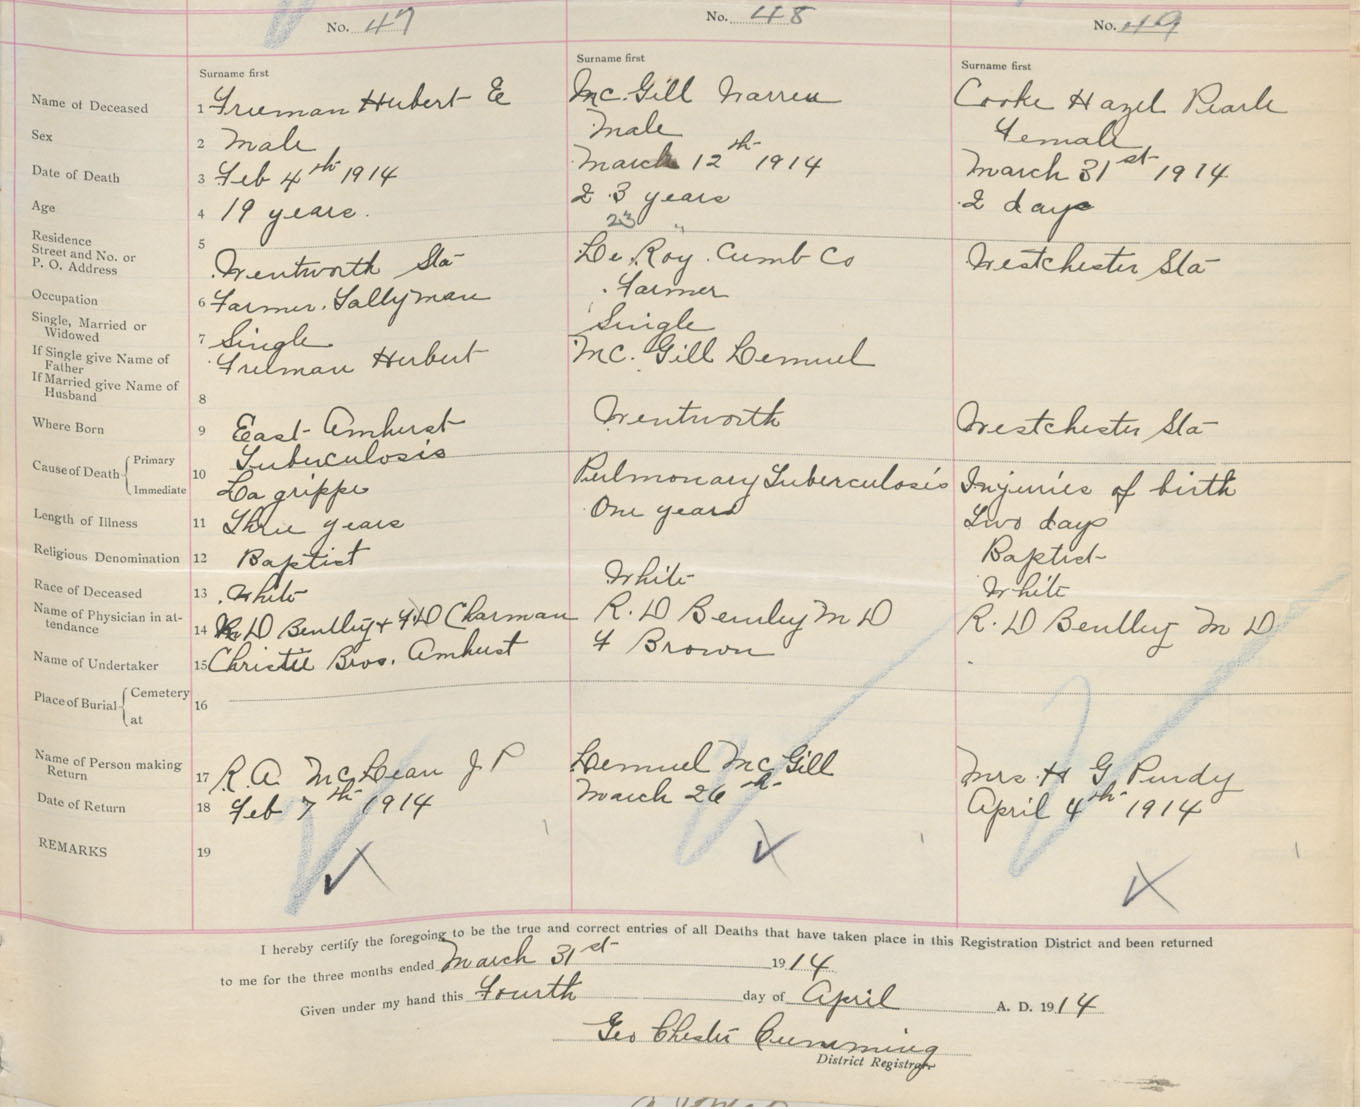 No. 47 No. 48 No. 49
Surname first Surname first Surname first
Name of Deceased 1 Freeman Hubert E Mc. Gill Warren Cooke Hazel Pearle
Sex 2 Male Male Female
Date of Death 3 Feb 4th 1914 March 12th 1914 March 31st 1914
Age 4 19 years. 23 years 2 days
23
Residence
Street and No. or
P. O. Address 5 Wentworth Sta De Roy. Cumb Co Westchester Sta
Occupation 6 Farmer. Tallyman Farmer
Single, Married or
Widowed 7 Single Single
If Single give Name of
Father Freeman Herbert Mc. Gill Lemuel
If Married give Name of
Husband 8
Where Born 9 East Amherst Wentworth Westchester Sta
Cause of Death Primary 10 Tuberculosis Pulmonary Tuberculosis Injuries of birth
Immediate La grippe
Length of Illness 11 Three years One year Two days
Religious Denomination 12 Baptist Baptist
Race of Deceased 13 White White White
Name of Physician in at-
tendance 14 R D Bentley & F D Charman R. D Bentley M D R. D Bentley M D
Name of Undertaker 15 Christie Bros. Amherst F Brown
Place of Burial Cemetery 16
at
Name of Person making
Return 17 R. A McLean J P Lemuel Mc Gill Mrs H G Purdy
Date of Return 18 Feb 7th 1914 March 26th April 4th 1914
REMARKS 19
I hereby certify the foregoing to be the true and correct entries of all Deaths that have taken place in this Registration District and been returned
to me for the three months ended March 31st 1914
Given under my hand this Fourth day of April A. D. 1914
Geo Chester Cumming
District Registrar